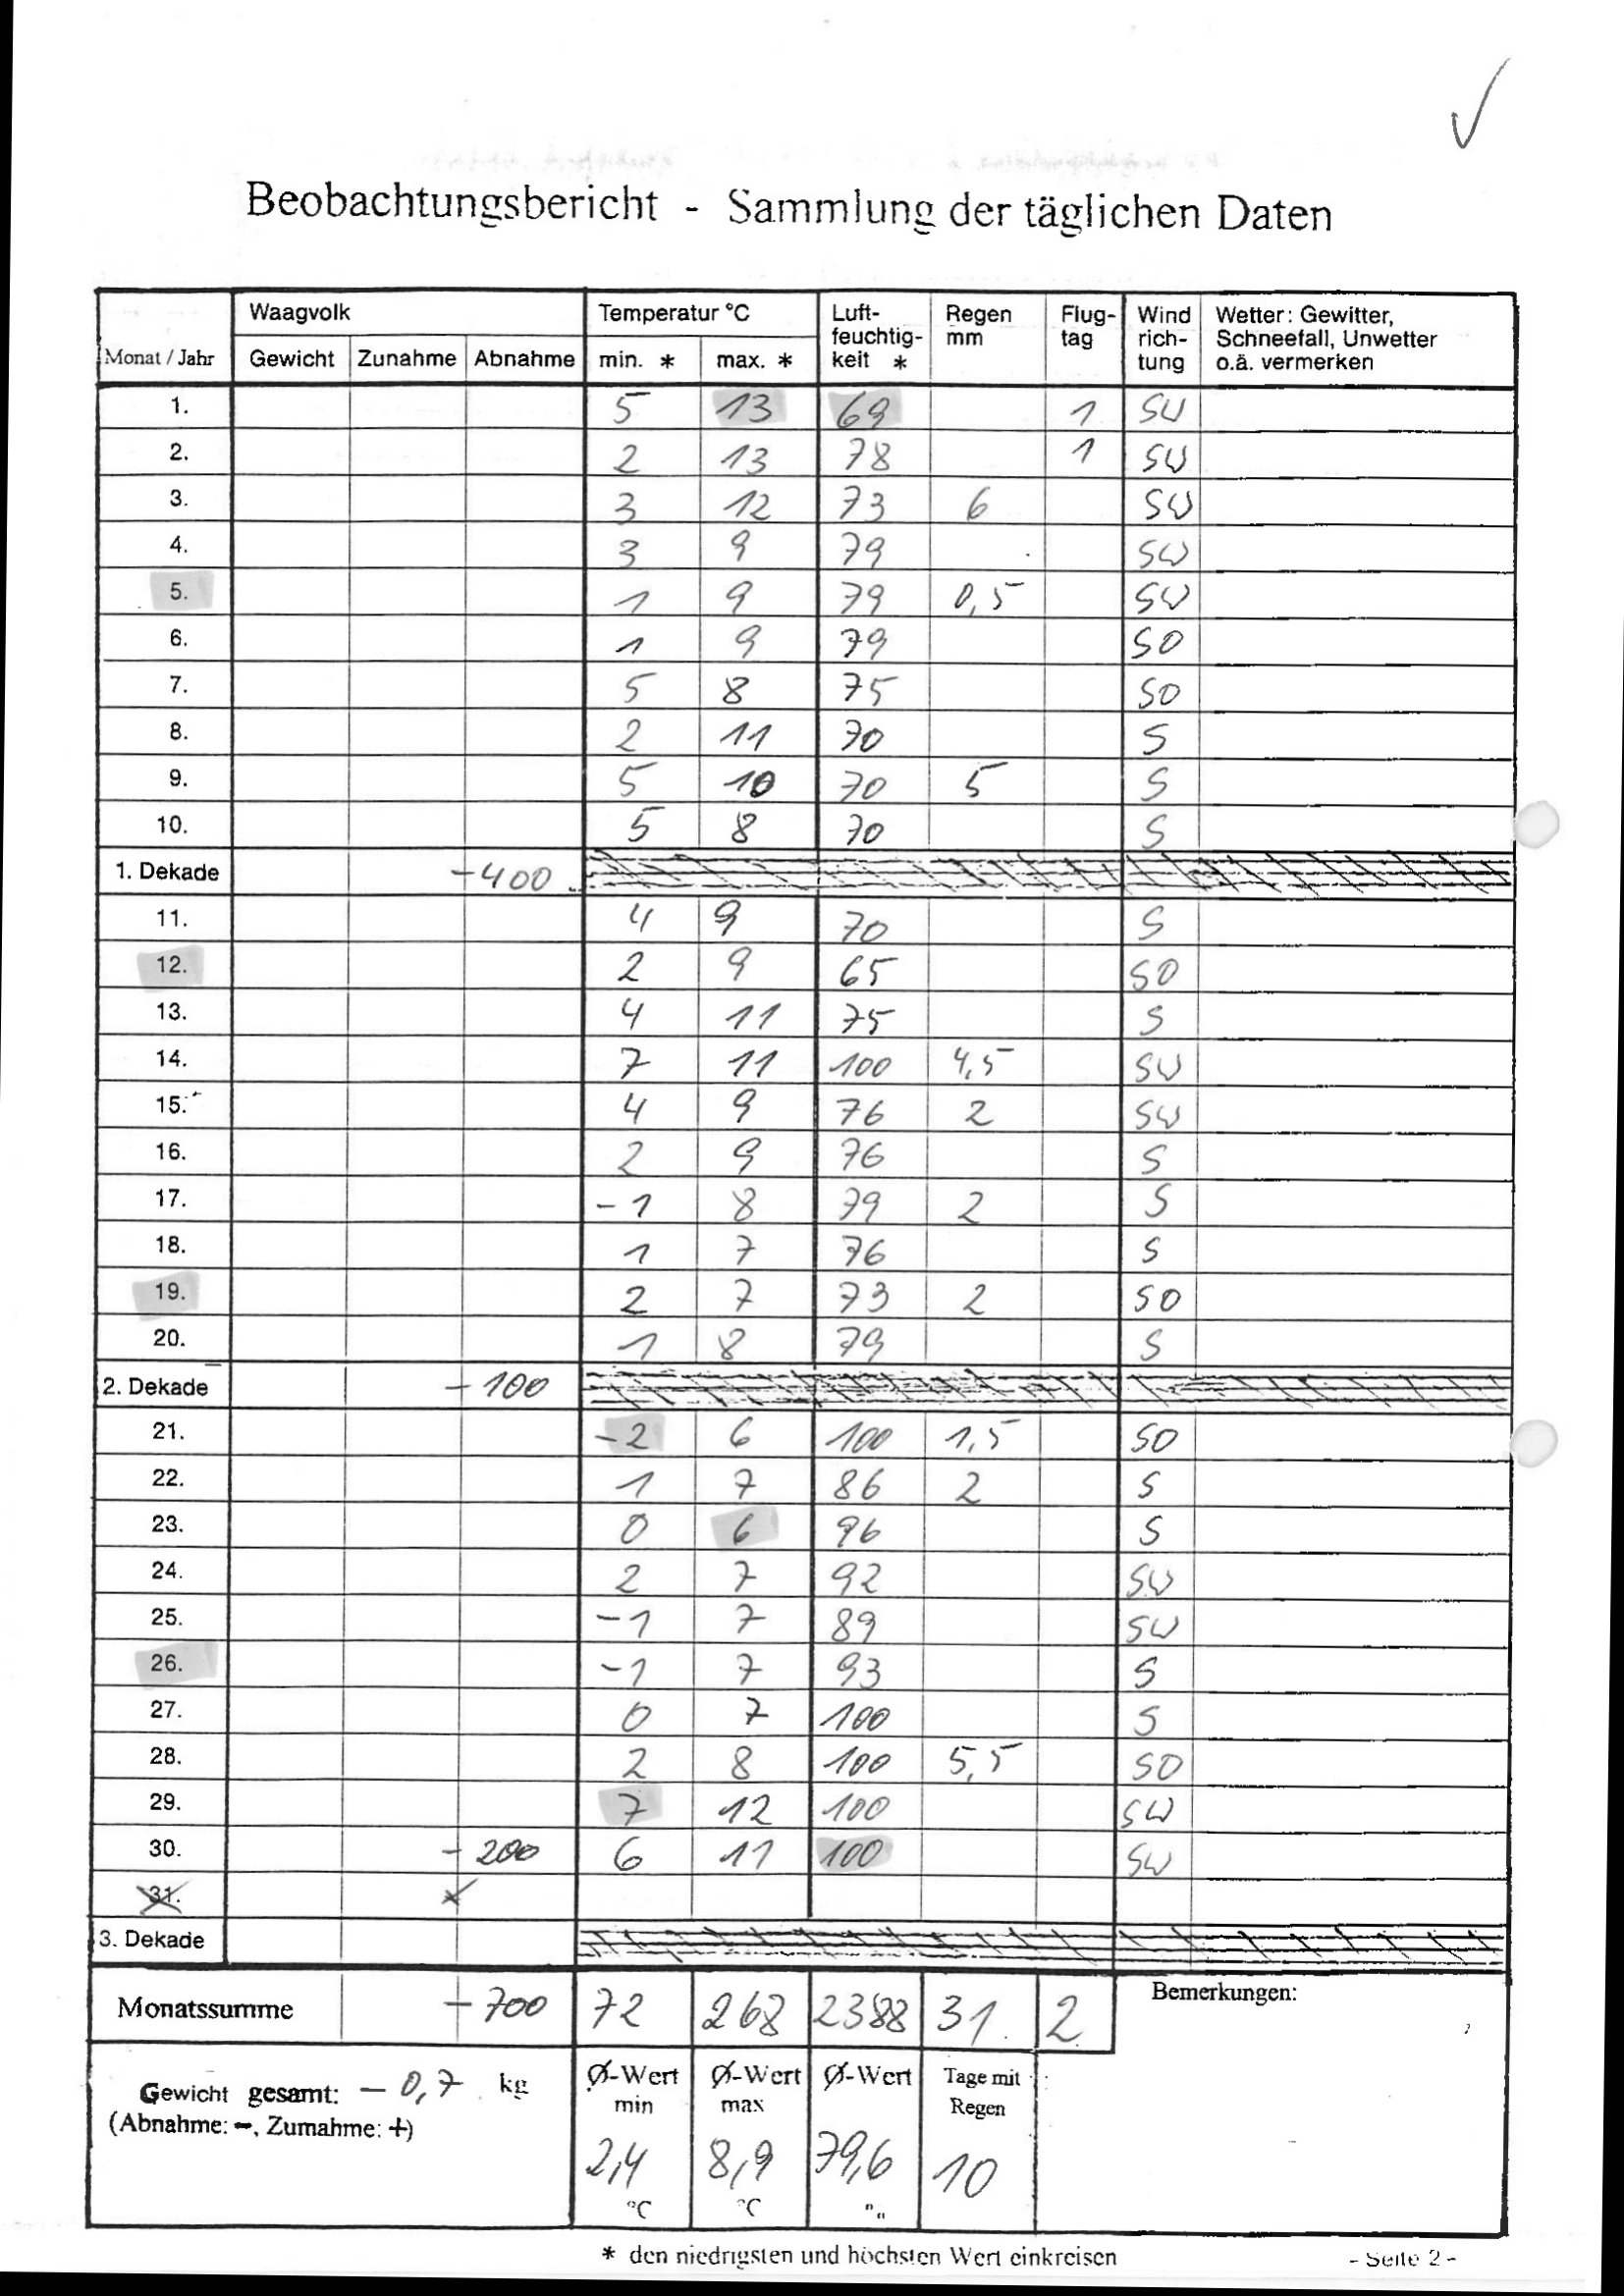 Beobachtungsbericht - Sammlung der täglichen Daten
Monat / Jahr Waagvolk Temperatur °C Luft-feuchtig-keit * Regen mm Flug-tag Wind rich-tung Wetter: Gewitter, Schneefall, Unwetter o.ä. vermerken
Gewicht Zunahme Abnahme min. * max. *
1. 5 13 69 1 SW
2. 2 13 78 1 SW
3. 3 12 73 6 SW
4. 3 9 79 SW
5. 1 9 79 0,5 SW
6. 1 9 79 SO
7. 5 8 75 SO
8. 2 11 70 S
9. 5 10 70 5 S
10. 5 8 70 S
1. Dekade -400
11. 4 9 70 S
12. 2 9 65 SO
13. 4 11 75 S
14. 7 11 100 4,5 SW
15. 4 9 76 2 SW
16. 2 9 76 S
17. -1 8 79 2 S
18. 1 7 76 S
19. 2 7 73 2 SO
20. 1 8 79 S
2. Dekade -100
21. -2 6 100 1,5 SO
22. 1 7 86 2 S
23. 0 6 96 S
24. 2 7 92 SW
25. -1 7 89 SW
26. -1 7 93 S
27. 0 7 100 S
28. 2 8 100 5,5 SO
29. 7 12 100 SW
30. -200 6 11 100 SW
31.
3. Dekade
Monatssumme -700 72 268 2388 31 2 Bemerkungen:
Gewicht gesamt: -0,7 kg Ø-Wert min Ø-Wert max Ø-Wert Tage mit Regen
(Abnahme: -, Zumahme: +)
2,4 8,9 79,6 10
°C °C
* den niedrigsten und höchsten Wert einkreisen - Seite 2 -